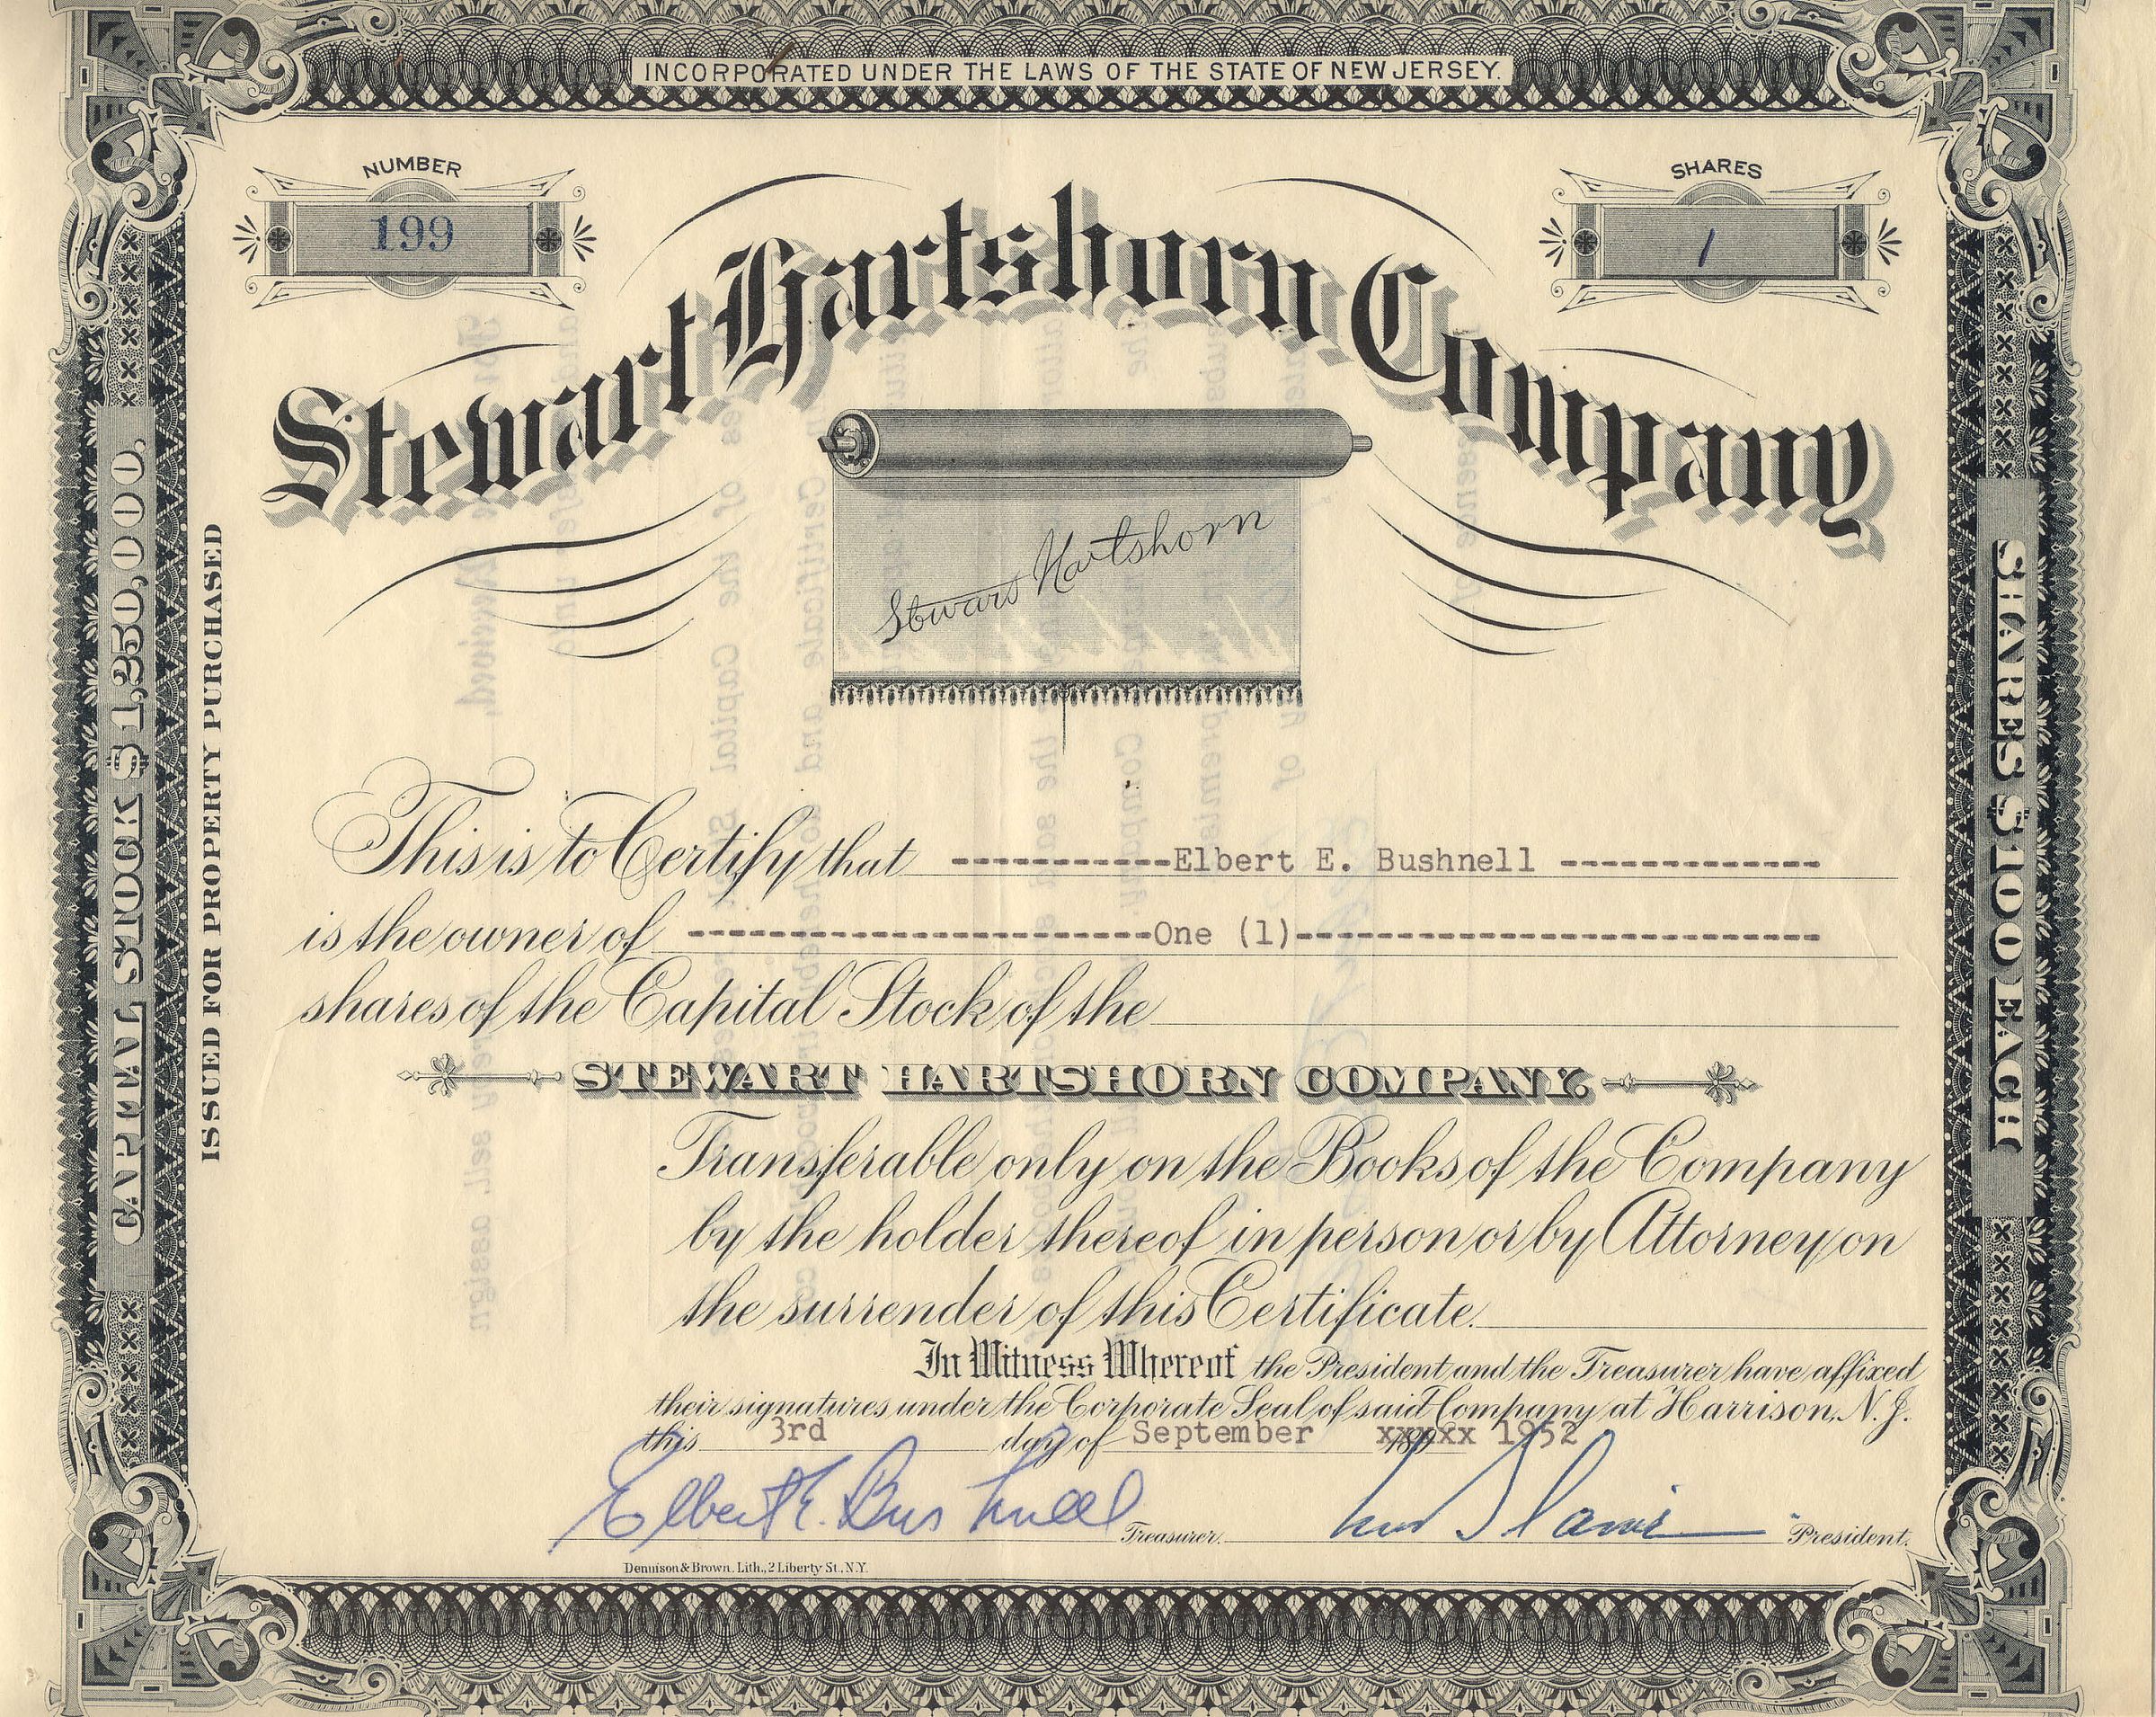 INCORPORATED UNDER THE LAWS OF THE STATE OF NEW JERSEY.
NUMBER
199
SHARES
1
Stewart Hartshorn Company
Stewart Hartshorn
CAPITAL STOCK $1,250,000.
ISSUED FOR PROPERTY PURCHASED
SHARES $100 EACH
This is to Certify that -----------Elbert E. Bushnell -------------
is the owner of -----------------------One (1)--------------------------
shares of the Capital Stock of the
STEWART HARTSHORN COMPANY.
Transferable only on the Books of the Company
by the holder thereof in person or by Attorney on
the surrender of this Certificate.
In Witness Whereof the President and the Treasurer have affixed
their signatures under the Corporate Seal of said Company at Harrison, N.J.
this 3rd day of September xxxxx 1952
Elbert E. Bushnell Treasurer. President.
Dennison & Brown. Lith., 2 Liberty St., N.Y.